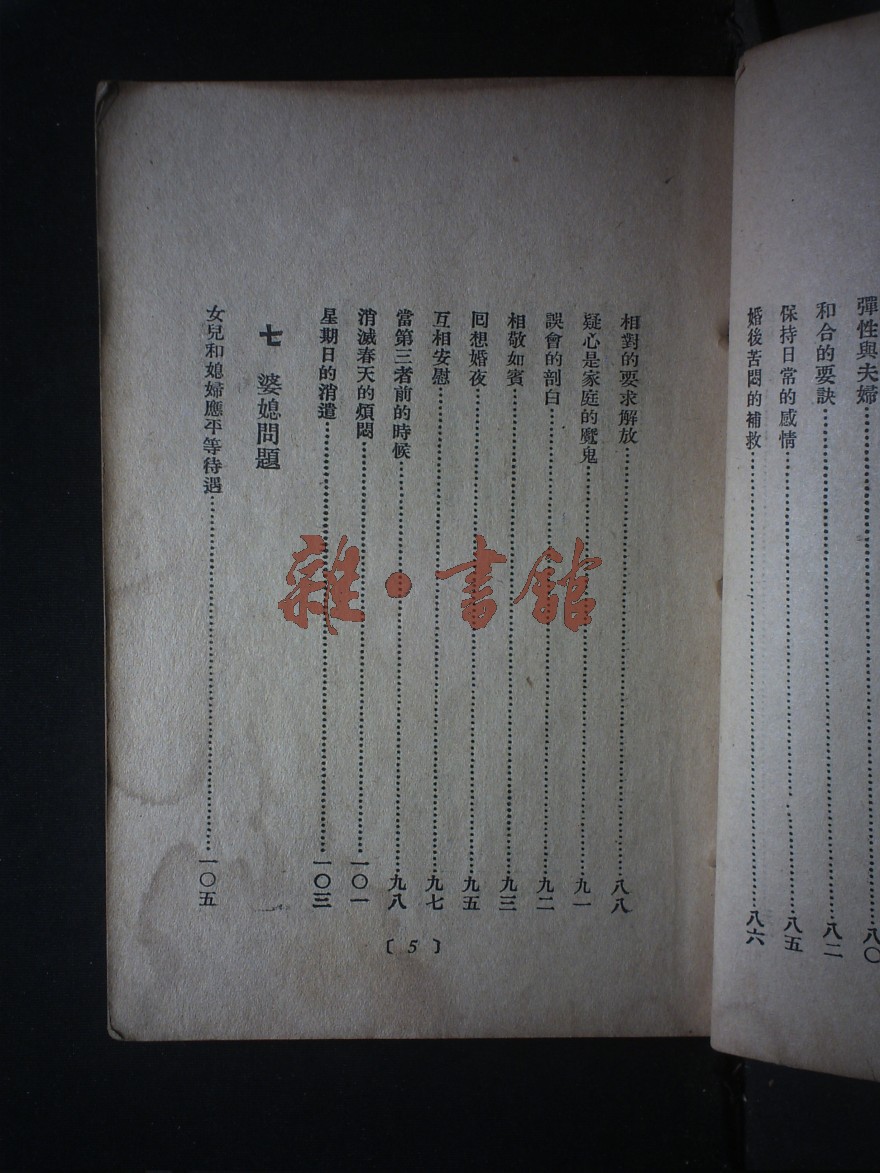 彈性與夫婦……八〇
和合的要訣……八二
保持日常的感情……八五
婚後苦悶的補救……八六
相對的要求解放……八八
疑心是家庭的魔鬼……九一
誤會的剖白……九二
相敬如賓……九三
回想婚夜……九五
互相安慰……九七
當第三者前的時候……九八
消滅春天的煩悶……一〇一
星期日的消遣……一〇三
七 婆媳問題
女兒和媳婦應平等待遇……一〇五
〔5〕
雜·書館